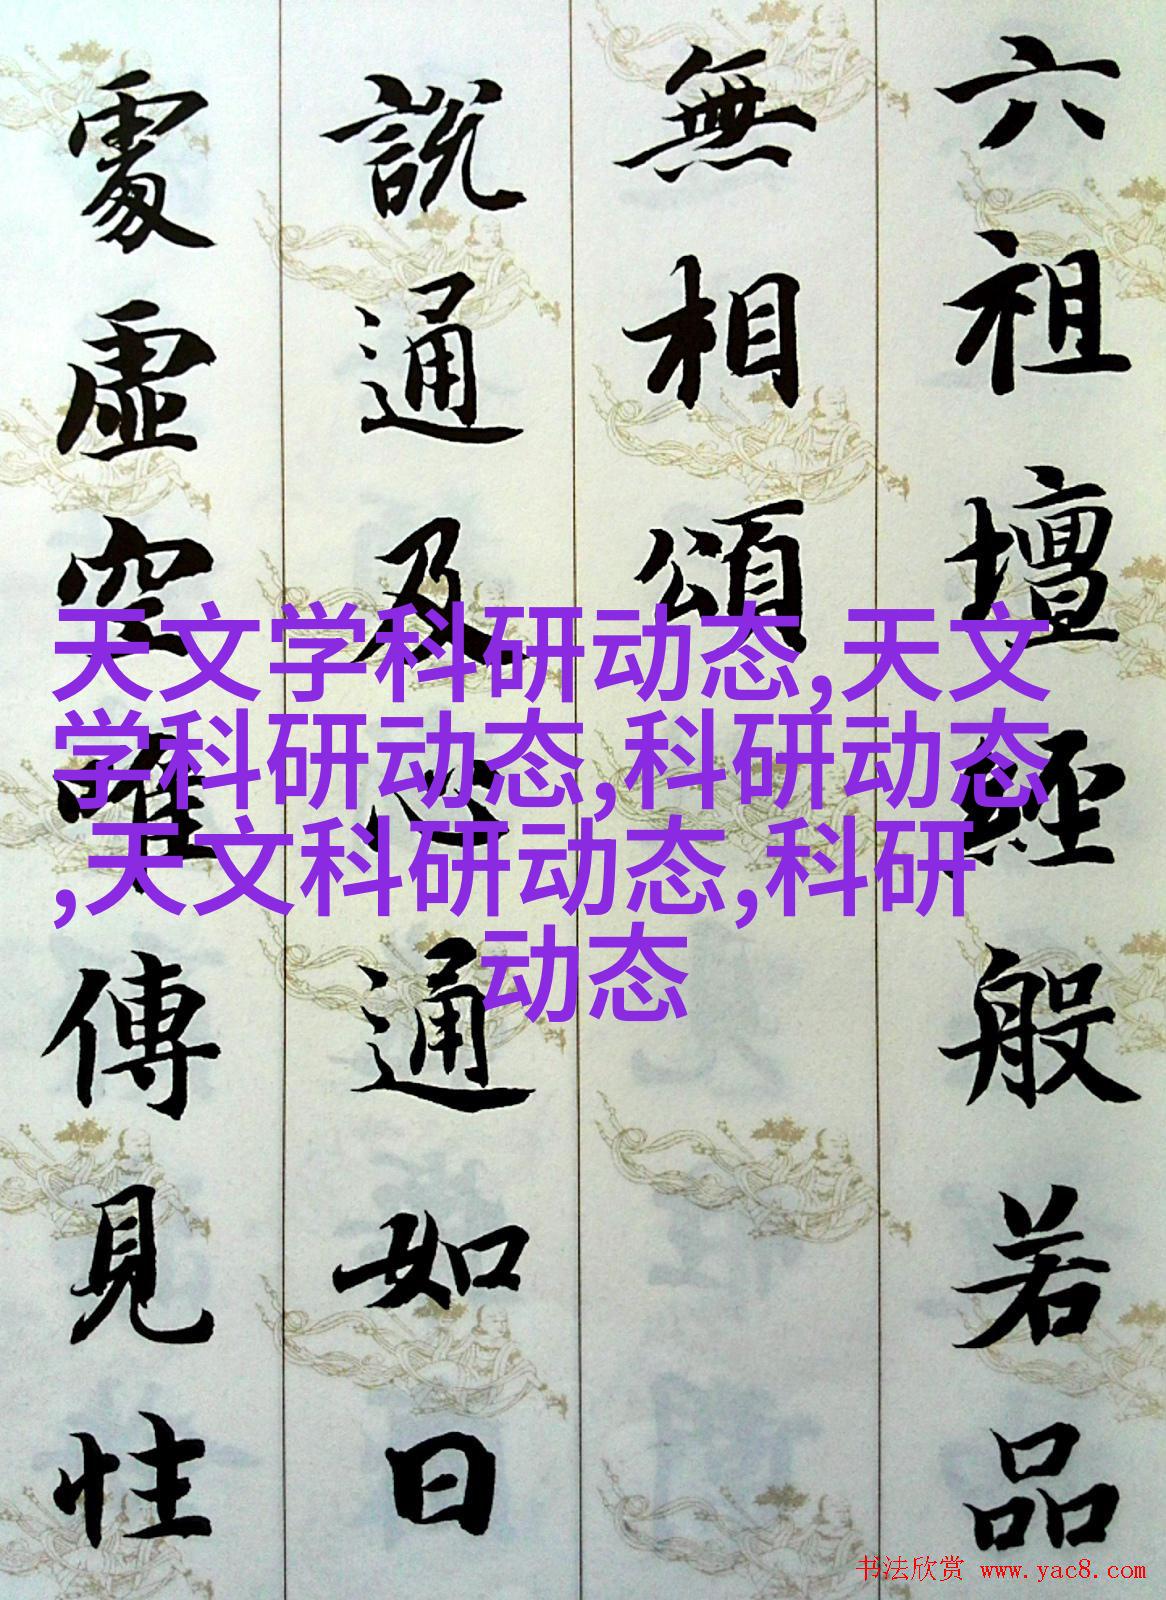 六祖壇經般若品
無相頌
說通及心通如日
處虛空唯傳見性
天文学科研动态,天文
学科研动态,科研动态
,天文科研动态,科研
动态
书法欣赏 www.yac8.com